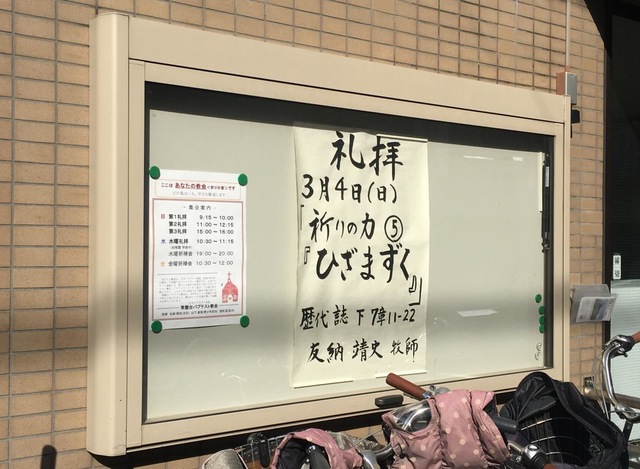 ここは あなたの教会 <祈りの家>です
- 集会案内 -
日 第1礼拝 9:15～10:00
第2礼拝 11:00～12:15
第3礼拝 15:00～16:00
水 水曜礼拝 10:30～11:15
水曜祈祷会 19:00～20:00
金 金曜祈祷会 10:30～12:00
常盤台バプテスト教会
礼拝
3月4日(日)
「祈りの力 ⑤
『ひざまずく』」
歴代誌下 7章11-22
友納 靖史 牧師